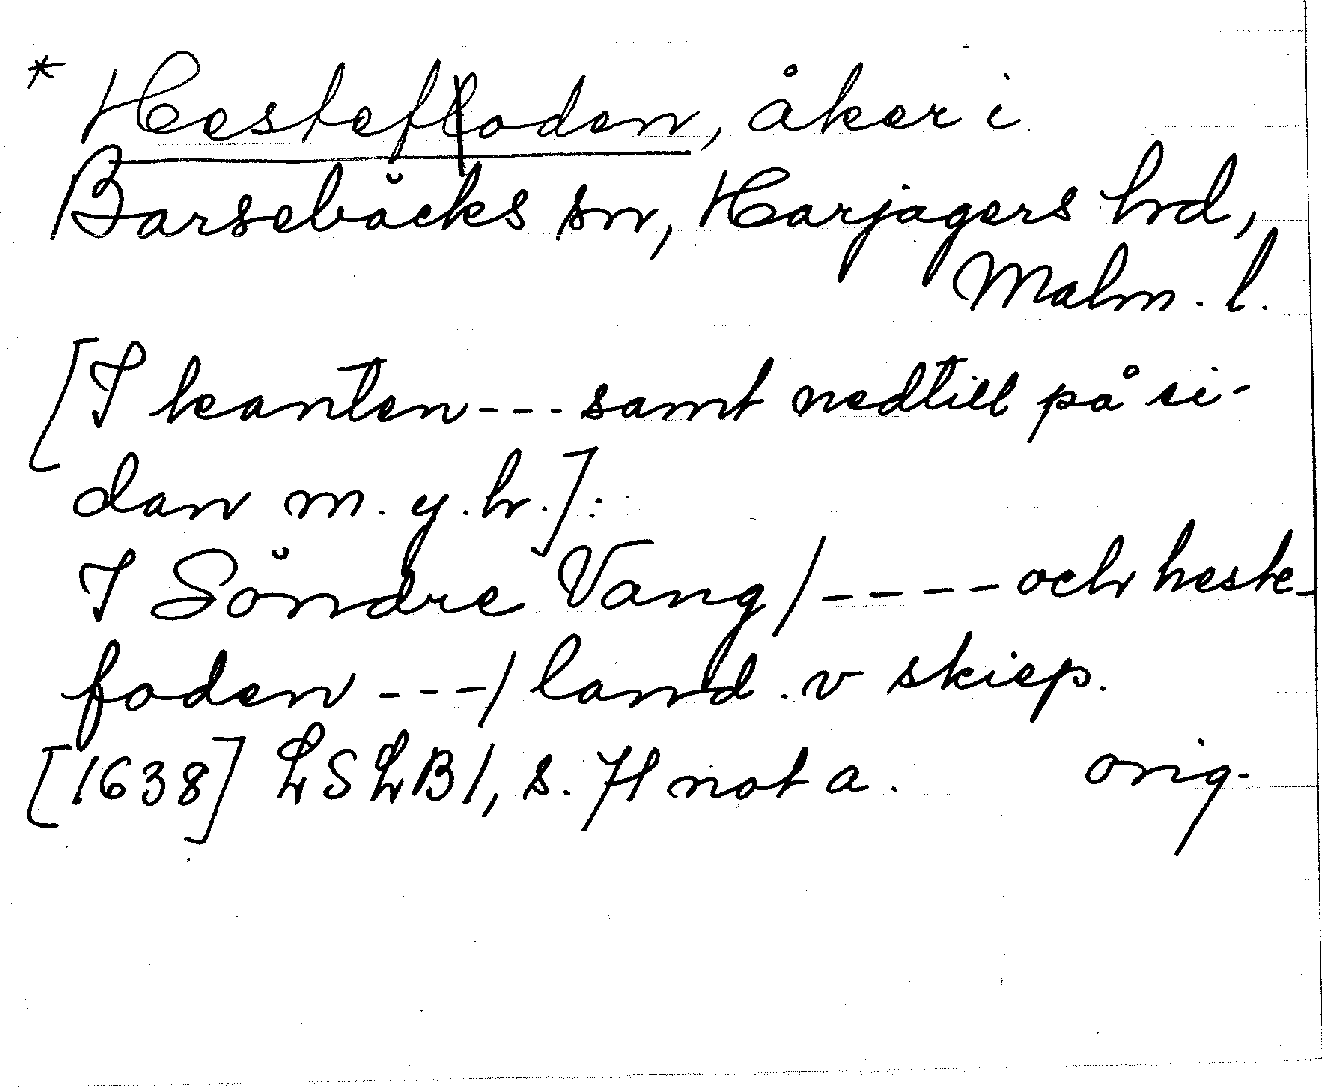 * Hestefoden, åker i
Barsebäcks sn, Harjagers hd,
Malm. l.
[I kanten --- samt nedtill på si-
dan m. y. h.]:
I Söndre Vang / ---- och heste-
foden --- / land . v skiep.
[1638] LSLB1, s. 71 not a. orig.